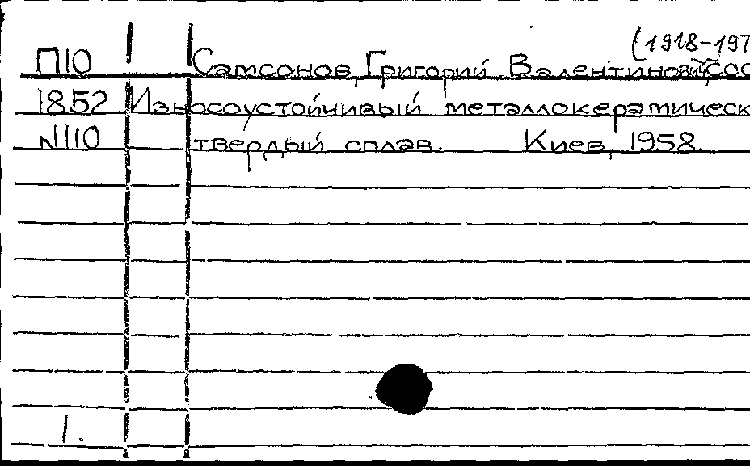 (1918-197
П10 Самсонов, Григорий Валентинович,
1852 Износоустойчивый металлокерамическ
N110 твердый сплав. Киев, 1958.
1.